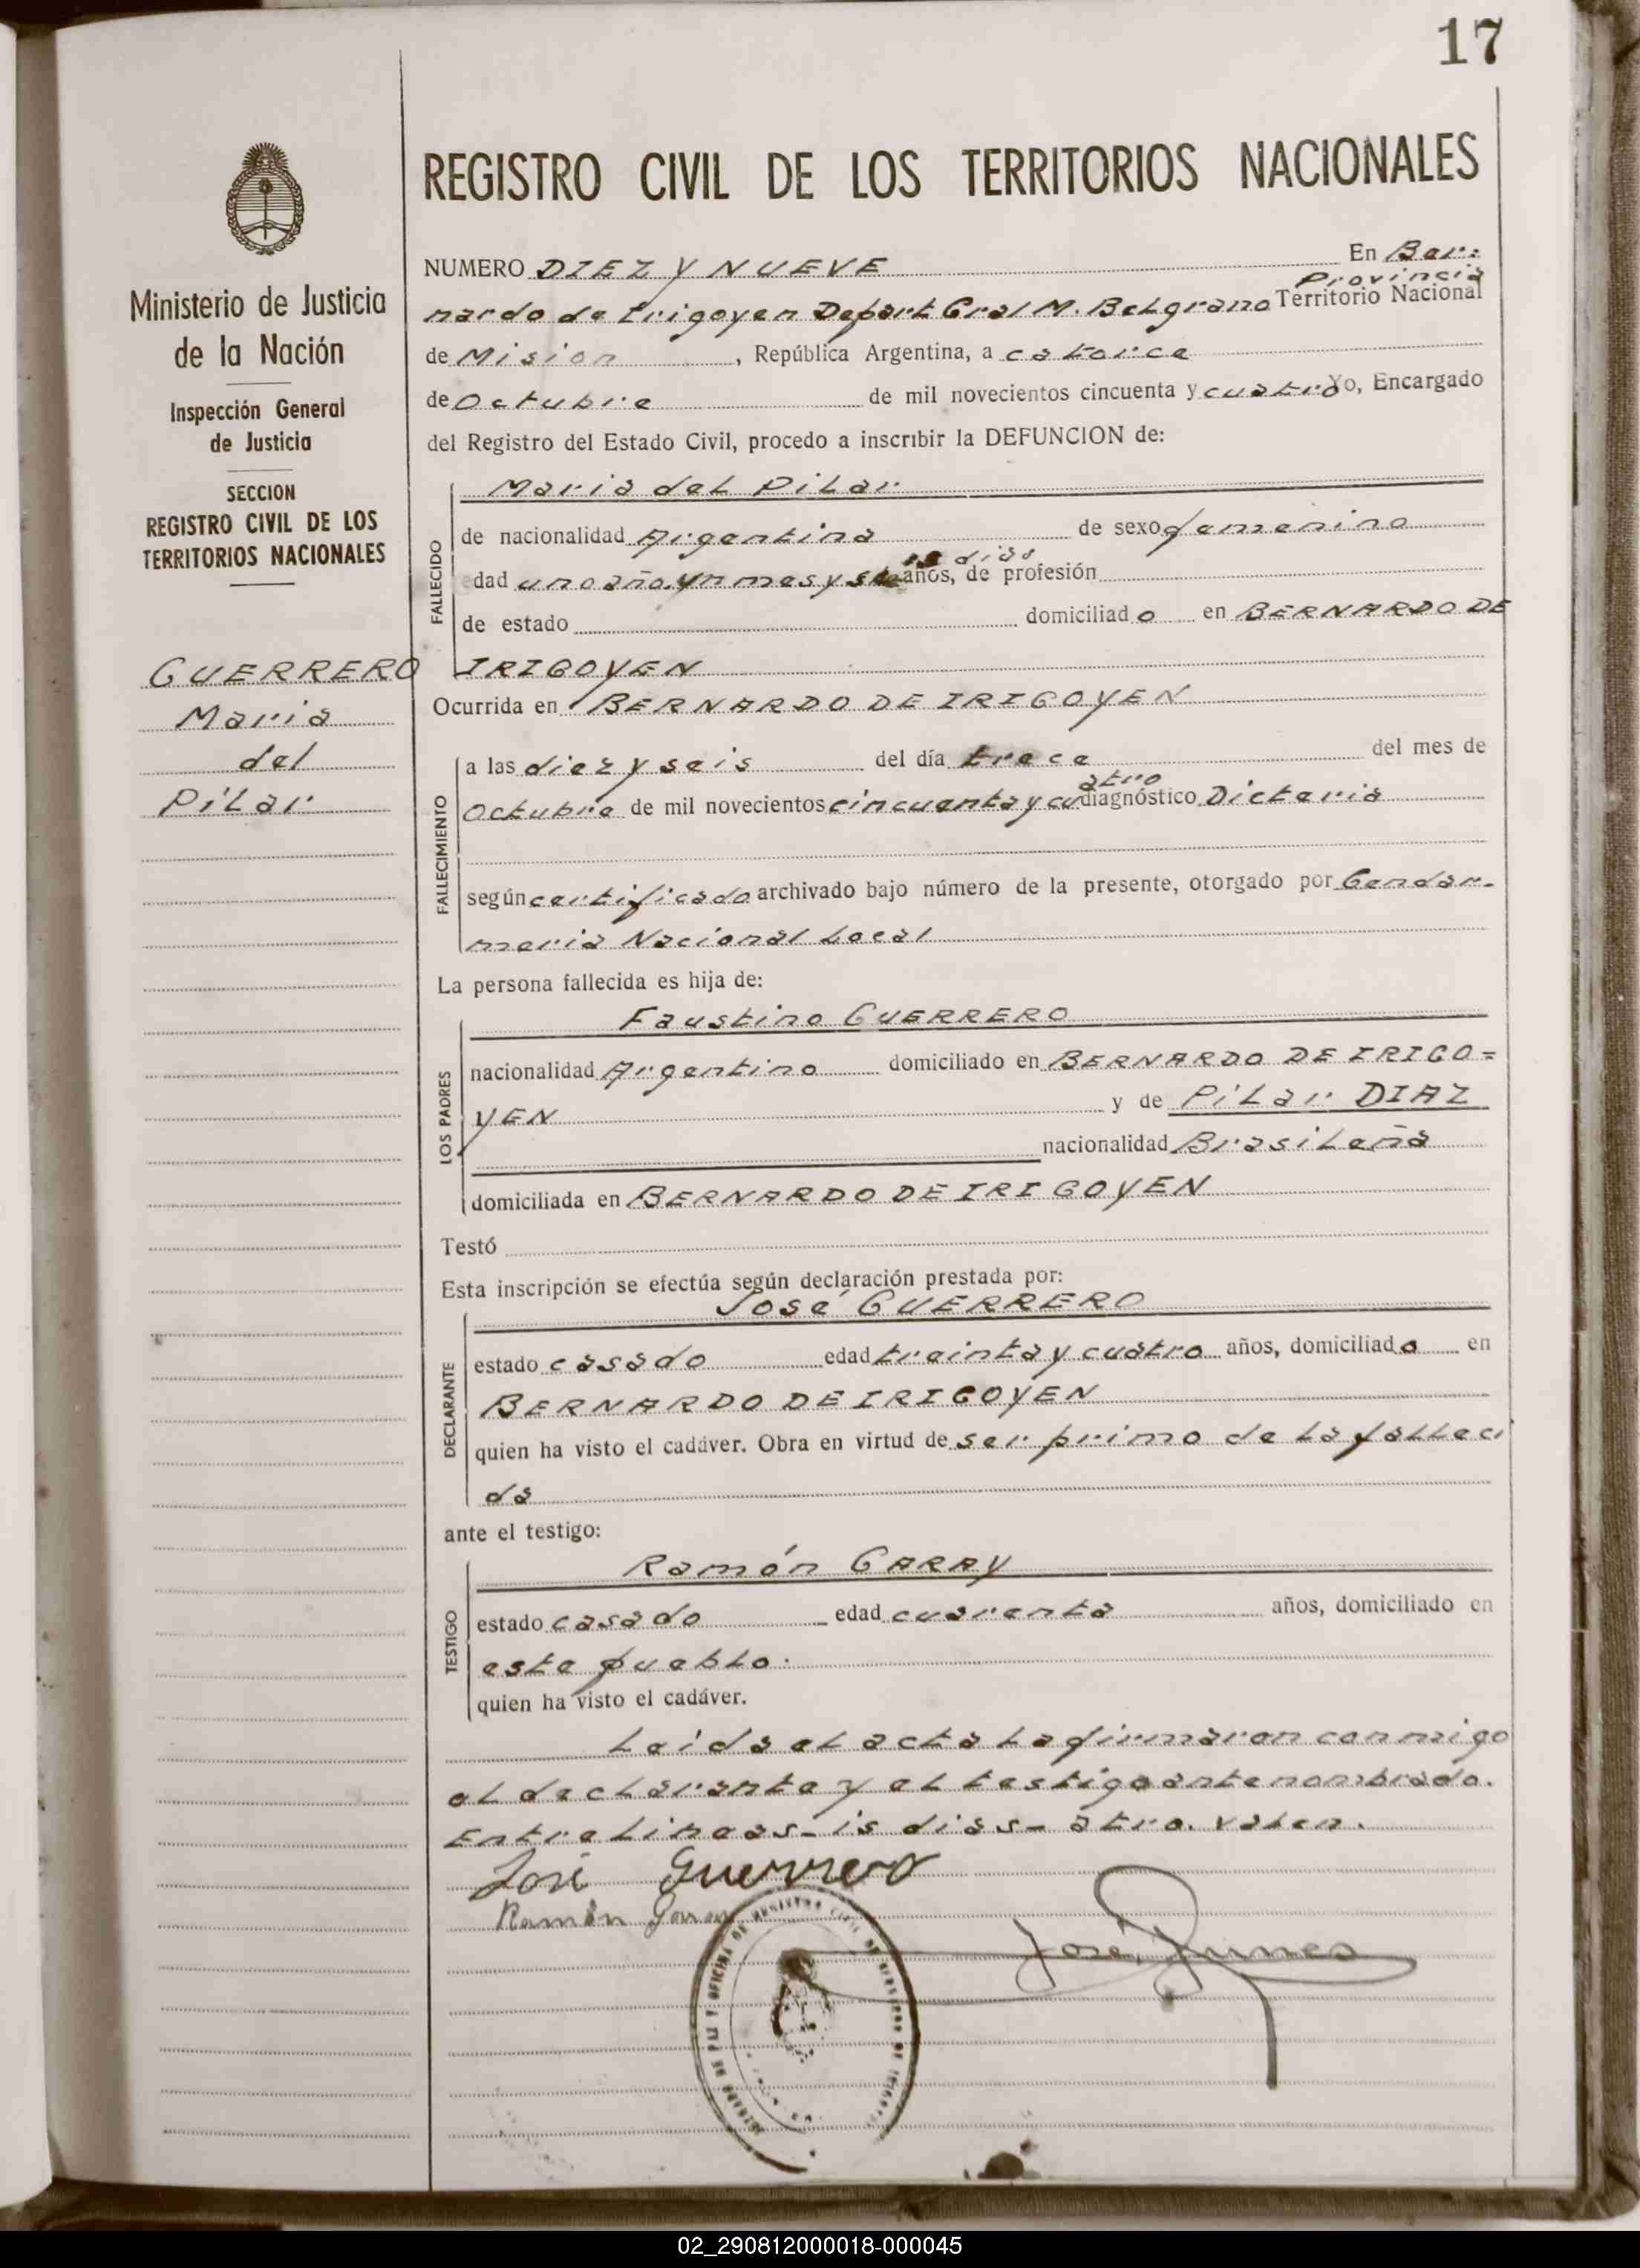 17
REGISTRO CIVIL DE LOS TERRITORIOS NACIONALES
Ministerio de Justicia
de la Nación
Inspección General
de Justicia
SECCION
REGISTRO CIVIL DE LOS
TERRITORIOS NACIONALES
GUERRERO
Maria
del
Pilar
NUMERO DIEZ Y NUEVE En Ber-
Provincia
nardo de Irigoyen Depart Gral M. Belgrano Territorio Nacional
de Mision, República Argentina, a catorce
de Octubre de mil novecientos cincuenta y cuatro Yo, Encargado
del Registro del Estado Civil, procedo a inscribir la DEFUNCION de:
FALLECIDO
Maria del Pilar
de nacionalidad Argentina de sexo femenino
is dias
edad uno año, un mes y se años, de profesión
de estado domiciliado en BERNARDO DE
IRIGOYEN
Ocurrida en BERNARDO DE IRIGOYEN
FALLECIMIENTO
a las diez y seis del día trece del mes de
atro
Octubre de mil novecientos cincuenta y cu diagnóstico Dicteria
según certificado archivado bajo número de la presente, otorgado por Gendar-
meria Nacional Local
La persona fallecida es hija de:
LOS PADRES
Faustino GUERRERO
nacionalidad Argentino domiciliado en BERNARDO DE IRIGO=
YEN y de Pilar DIAZ
nacionalidad Brasileña
domiciliada en BERNARDO DE IRIGOYEN
Testó
Esta inscripción se efectúa según declaración prestada por:
DECLARANTE
José GUERRERO
estado casado edad treinta y cuatro años, domiciliado en
BERNARDO DE IRIGOYEN
quien ha visto el cadáver. Obra en virtud de ser primo de la falleci
da
ante el testigo:
TESTIGO
Ramón GARAY
estado casado edad cuarenta años, domiciliado en
este pueblo.
quien ha visto el cadáver.
Leida el acta la firmaron conmigo
el declarante y el testigo antenombrado.
Entrelineas- is dias- atro. valen.
José Guerrero
Ramón Garay
José
02_290812000018-000045